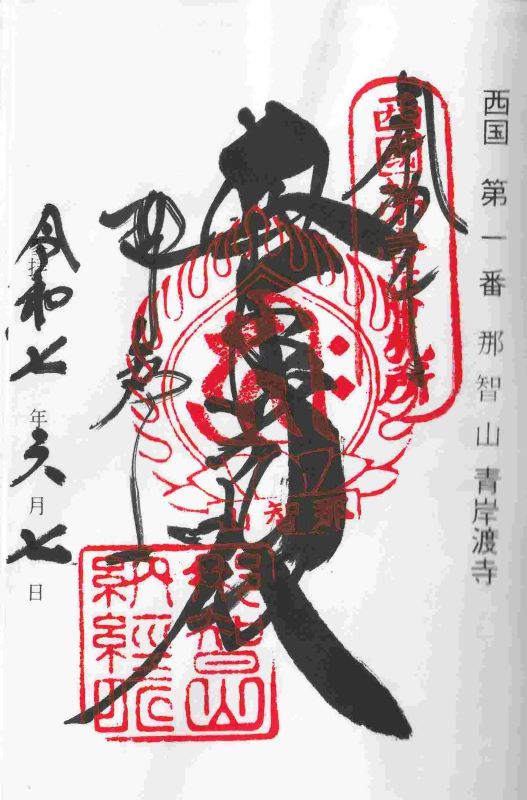 西国 第一番 那智山 青岸渡寺
奉拝
西国第一番札所
普照殿
那智山
那智山
納経所
令和七年六月七日